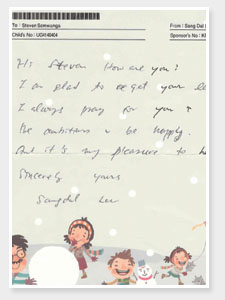 To : Steven Ssmwanga
From : Sang Dal
Child's No : UGM140404
Sponsor's No : K
Hi Steven How are you?
I am glad to get your
I always pray for you
be ambitious & be happy.
But it's my pleasure to
Sincerely yours
Sangdal Lee